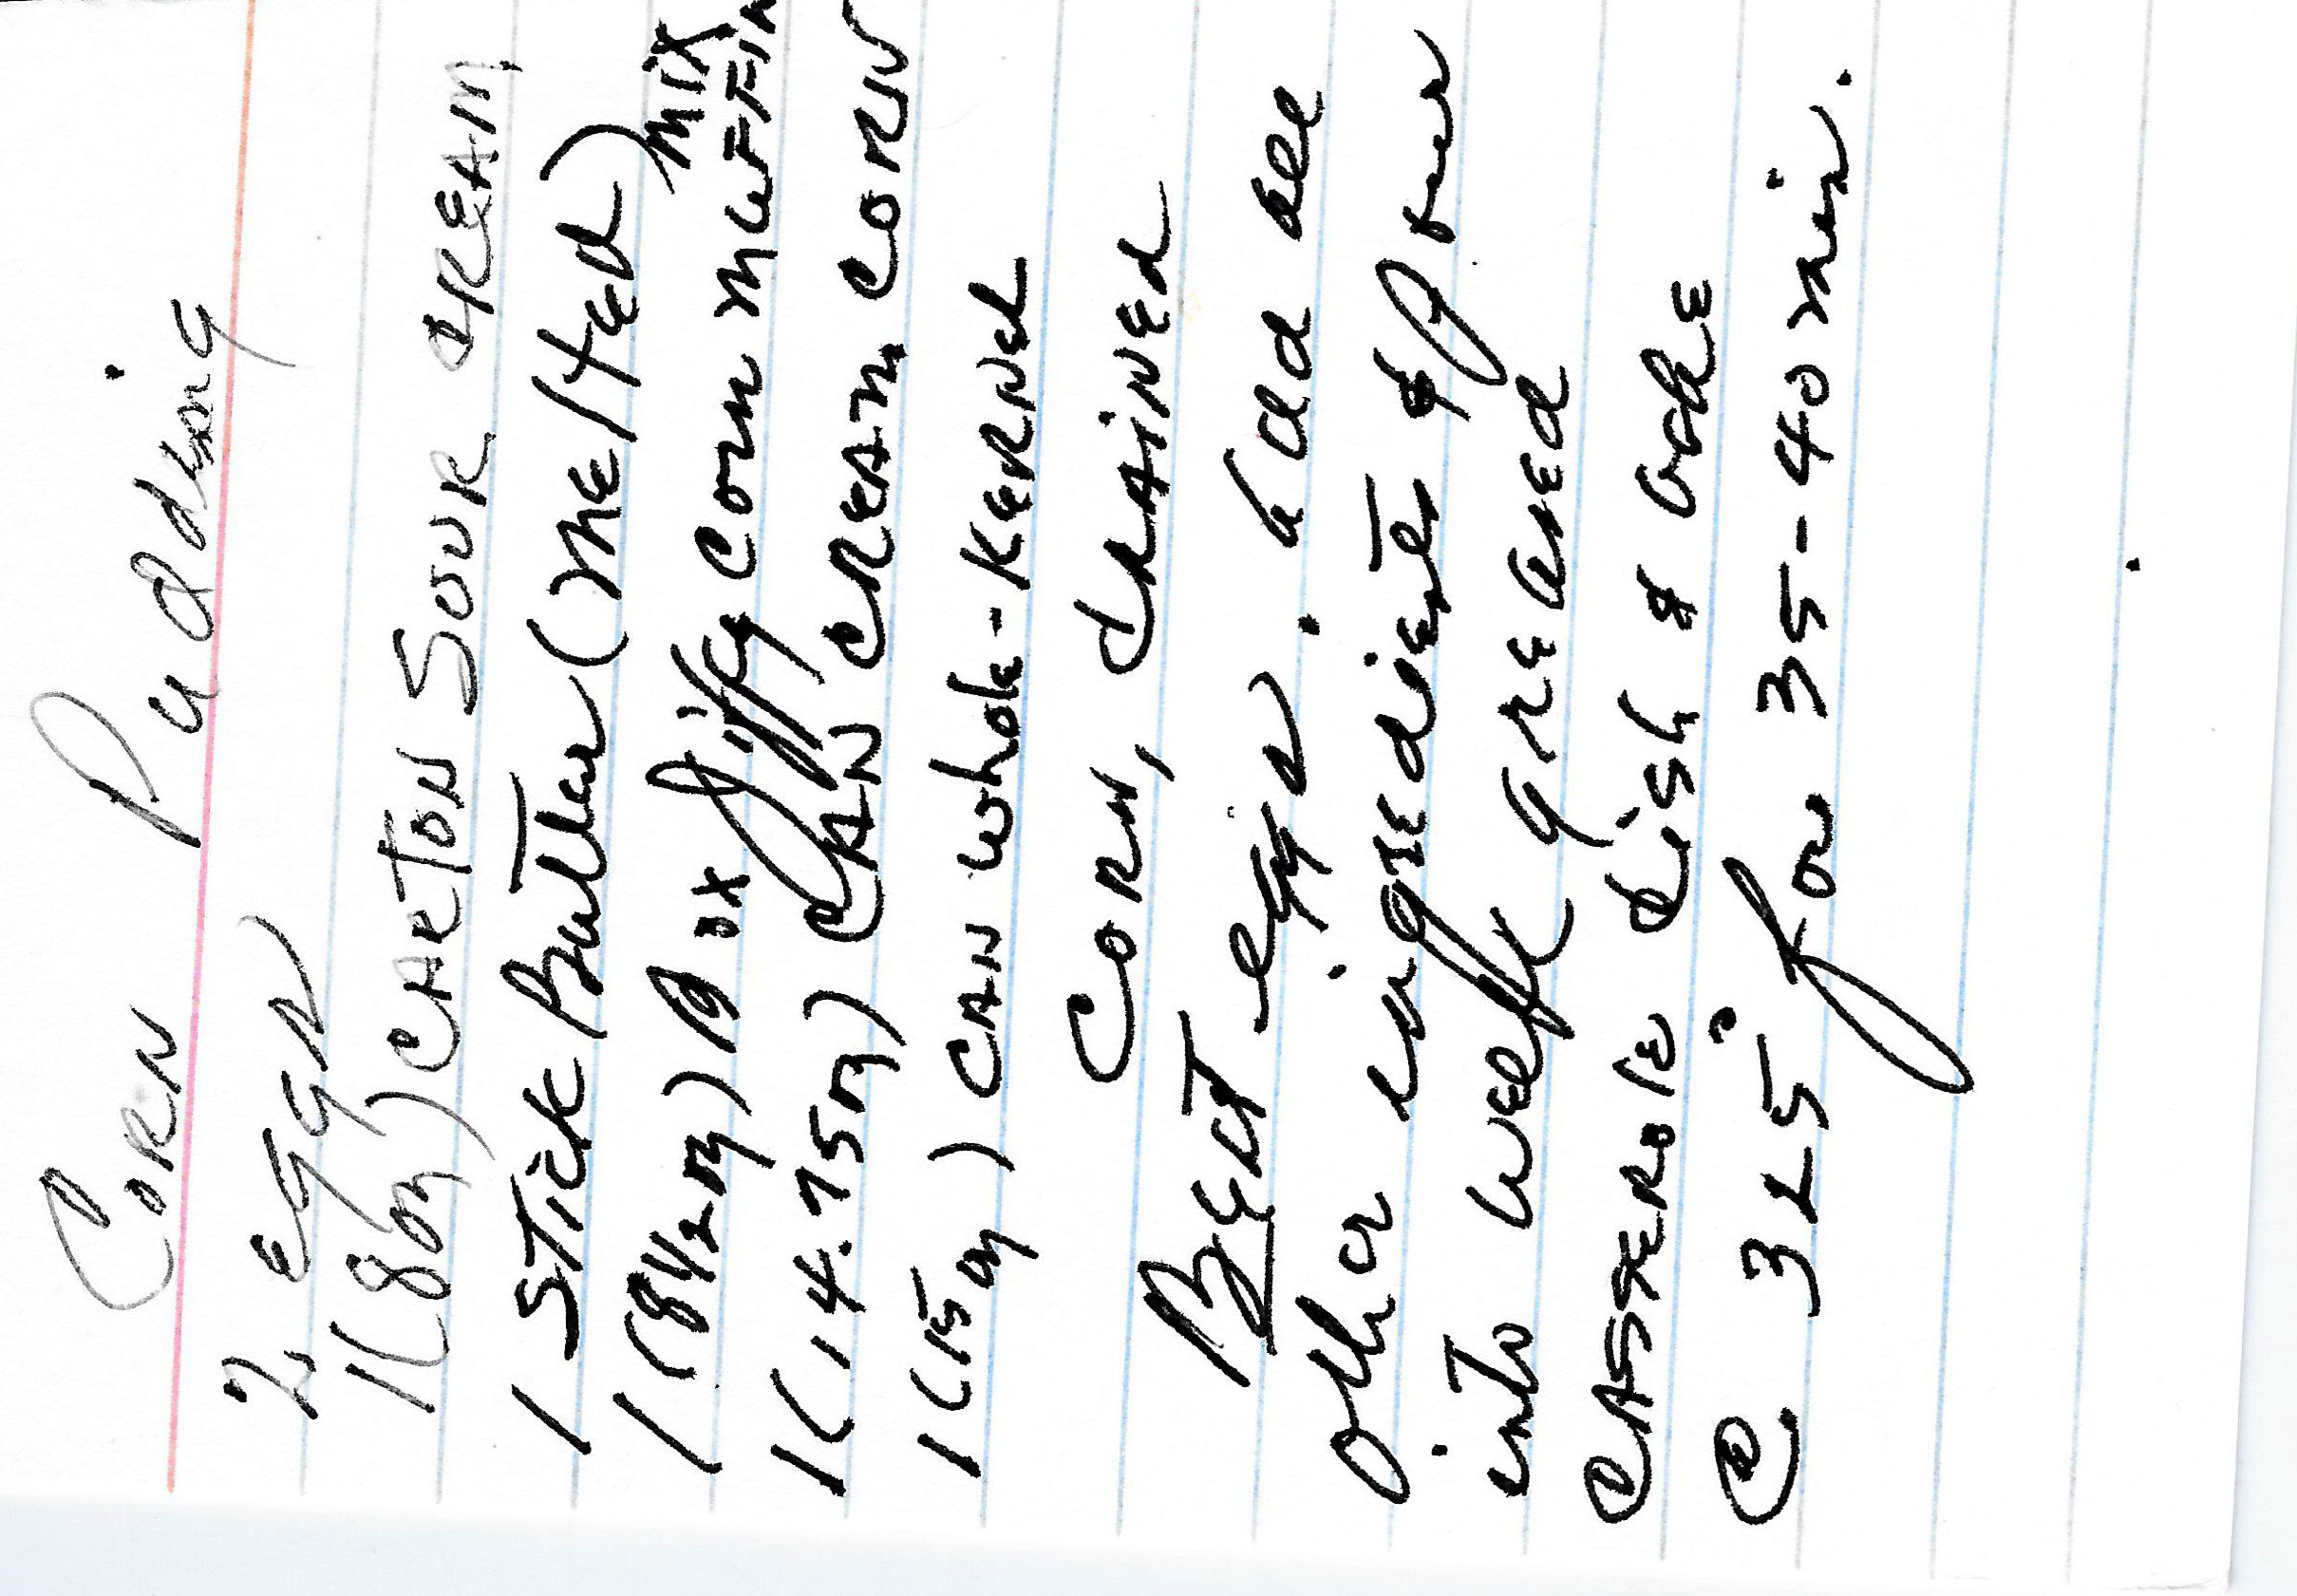 Corn Pudding
2 eggs
1 (8oz) CARTON SOUR CREAM
1 STick Butter (melted)
1 (8½oz) Box Jiffy Corn MUFFIN MIX
1 (14.75oz) CAN CREAM CORN
1 (15oz) CAN whole-KERNEL
CORN, dRAiNEd
Beat eggs. Add all
other ingredients & pour
into well greased
CASSEROlE dish & bake
@ 325° for 35-40 min.